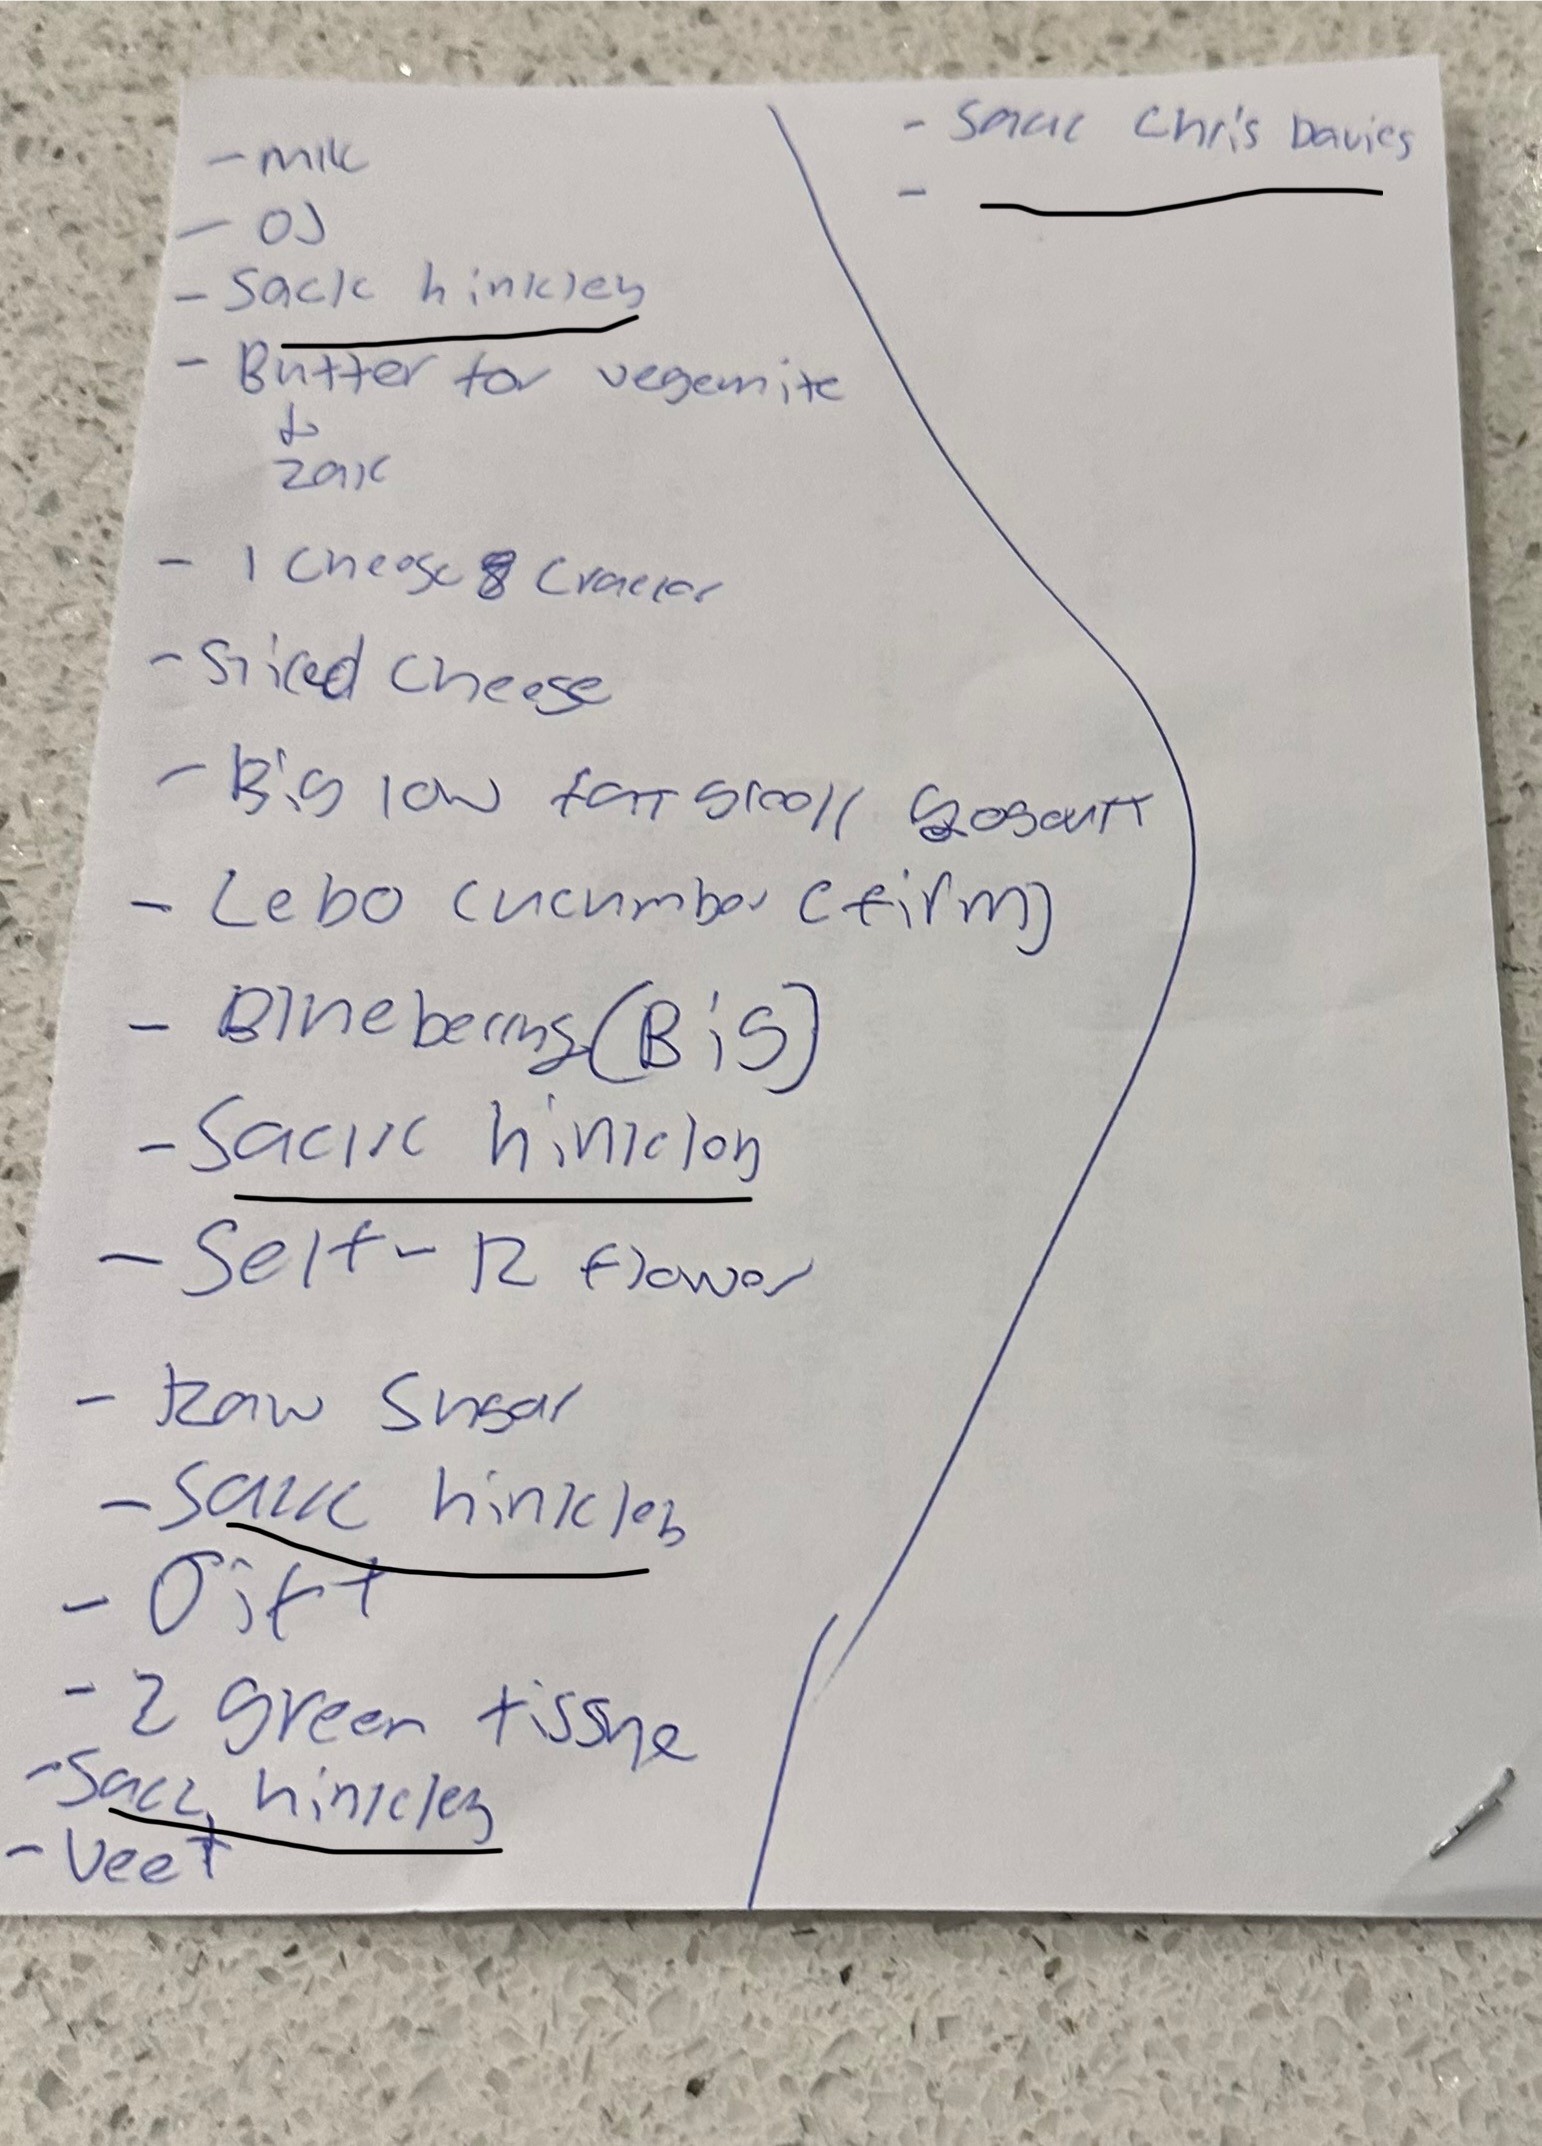 - milk
- OJ
- Sack hinkley
- Butter for vegemite
&
zak
- 1 Cheese & Cracker
- Sliced Cheese
- Big low fat greek yogourt
- Lebo cucumber (firm)
- Blueberrys (Big)
- Sack hinkley
- Self-R flower
- Raw Sugar
- Sack hinkley
- Gift
- 2 green tissue
- Sack hinkley
- Veet
- Sack Chris Davies
-